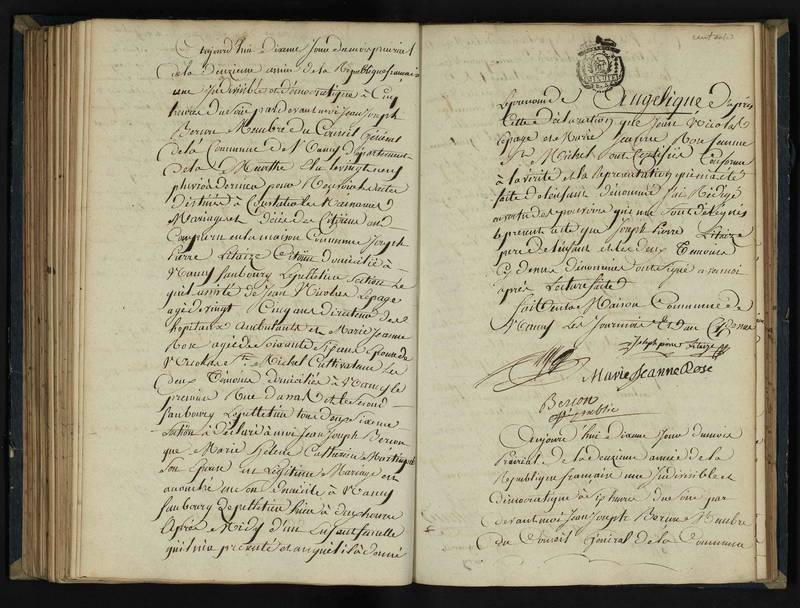 Aujourd'hui dixieme Jour du mois prairial
de la deuxieme année de la Republique francaise
une Indivisible et démocratique à Cinq
heures du soir pardevant moi Jean Joseph
Berson Membre du Conseil Général
de la Commune de Nancy département
de la Meurthe Elu le vingt neuf
pluviose dernier pour Recevoir les actes
destinés à Constater les Naissances
Mariages et décès des Citoyens ont
Comparu en la maison Commune Joseph
Pierre Citoien domicilié à
Nancy faubourg Lepelletier Section Le
quel assisté de Jean Nicolas Lepage
agé de vingt Cinq ans directeur des
hopitaux ambulants et Marie Jeanne
Rose agée de soixante Six ans Epouse de
Nicolas Michel Cultivateur Les
deux Témoins domiciliés à Nancy le
premier Rue et le Second
faubourg Lepelletier tous deux Sixieme
Section a déclaré à moi Jean Joseph Berson
que Marie Helene Catherine
Son Epouse en Légitime Mariage est
accouchée en son domicile à Nancy
faubourg Lepelletier hier à dix heures
Après Midy d'un Enfant femelle
qu'il m'a présenté et auquel il a donné
Le prénom de Angelique d'après
Cette déclaration que Jean Nicolas
Lepage et Marie Jeanne Rose femme
Michel ont Certifiée Conforme
à la vérité et la représentation qui m'a été
faite de l'enfant dénommé j'ai Rédigé
en vertu des pouvoirs qui me sont délégués
le présent acte que Joseph Pierre
pere de l'enfant et les deux Temoins
Ci dessus dénommés ont signé avec moi
après Lecture faite
fait en la Maison Commune de
Nancy Les Jour mois et an
Joseph pierre
Marie Jeanne Rose
Berson
Aujourd'hui dixieme Jour du mois
Prairial de la deuxieme année de la
Republique francaise une Indivisible et
démocratique à heures du soir par
devant moi Jean Joseph Berson Membre
du Conseil Général de la Commune